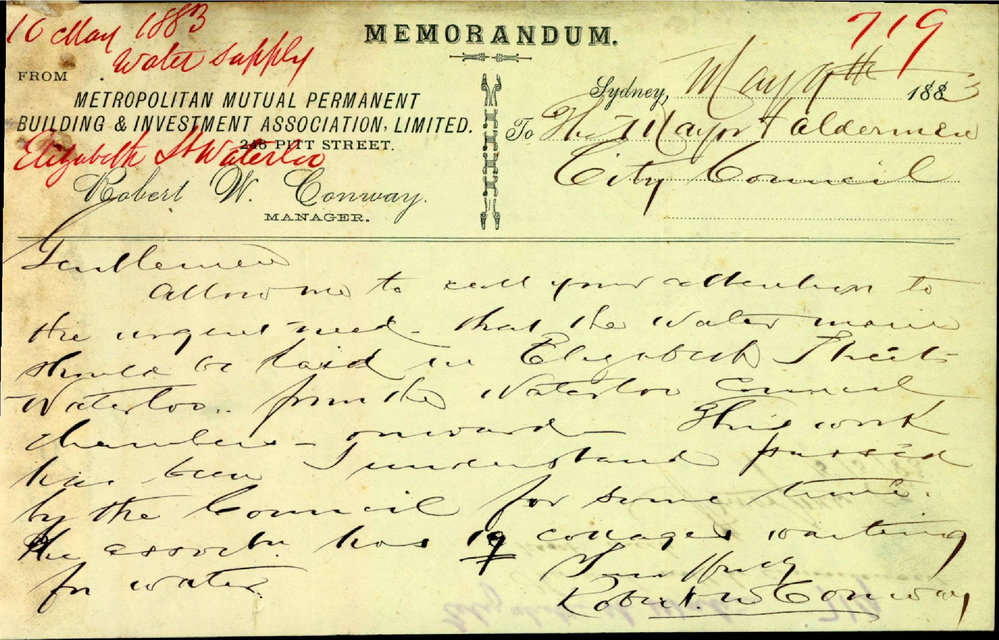 10 May 1883
Water supply
719
MEMORANDUM.
FROM
METROPOLITAN MUTUAL PERMANENT
BUILDING & INVESTMENT ASSOCIATION, LIMITED.
Elizabeth St Waterloo
248 PITT STREET.
Robert W. Conway.
MANAGER.
Sydney, May 9th 1883
To The Mayor & Aldermen
City Council
Gentlemen
Allow me to call your attention to
the urgent need that the water main
should be laid in Elizabeth Street
Waterloo.. from the Waterloo Council
Chambers - onward - This work
has been I understand passed
by the Council for some time.
The associtn. has 19 cottages waiting
for water.
Yours ffully
Robert. W Conway